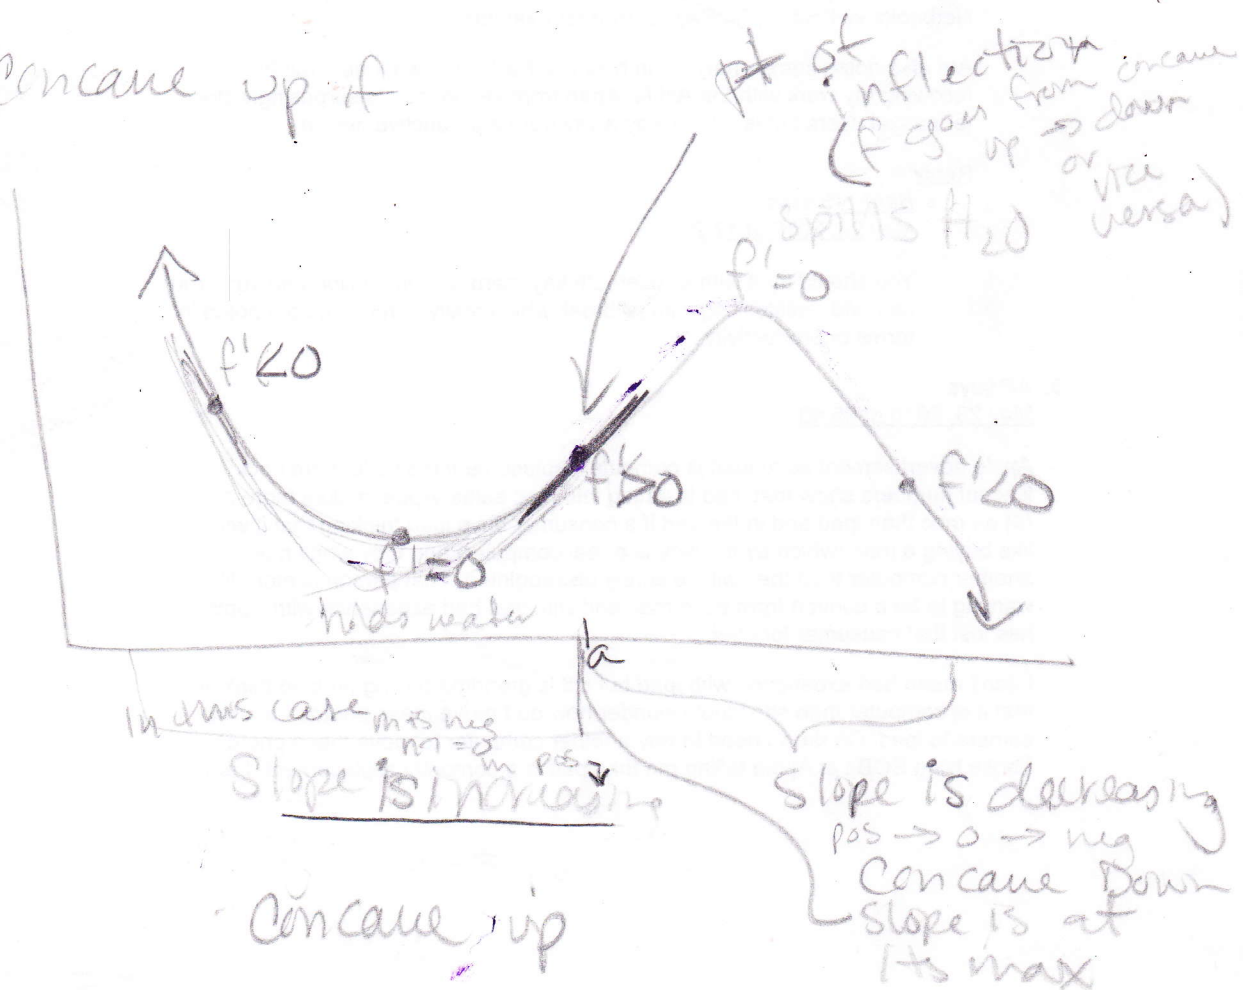 Concave up if
pt of
inflection
(f goes from concave
up → down
or
vice
versa)
spills H₂O
f'=0
f'<0
f'>0
f'<0
f'=0
holds water
a
In this case m is neg
m=0
m pos
Slope is increasing
Slope is decreasing
pos → 0 → neg
Concave Down
Concave up
slope is at
its max